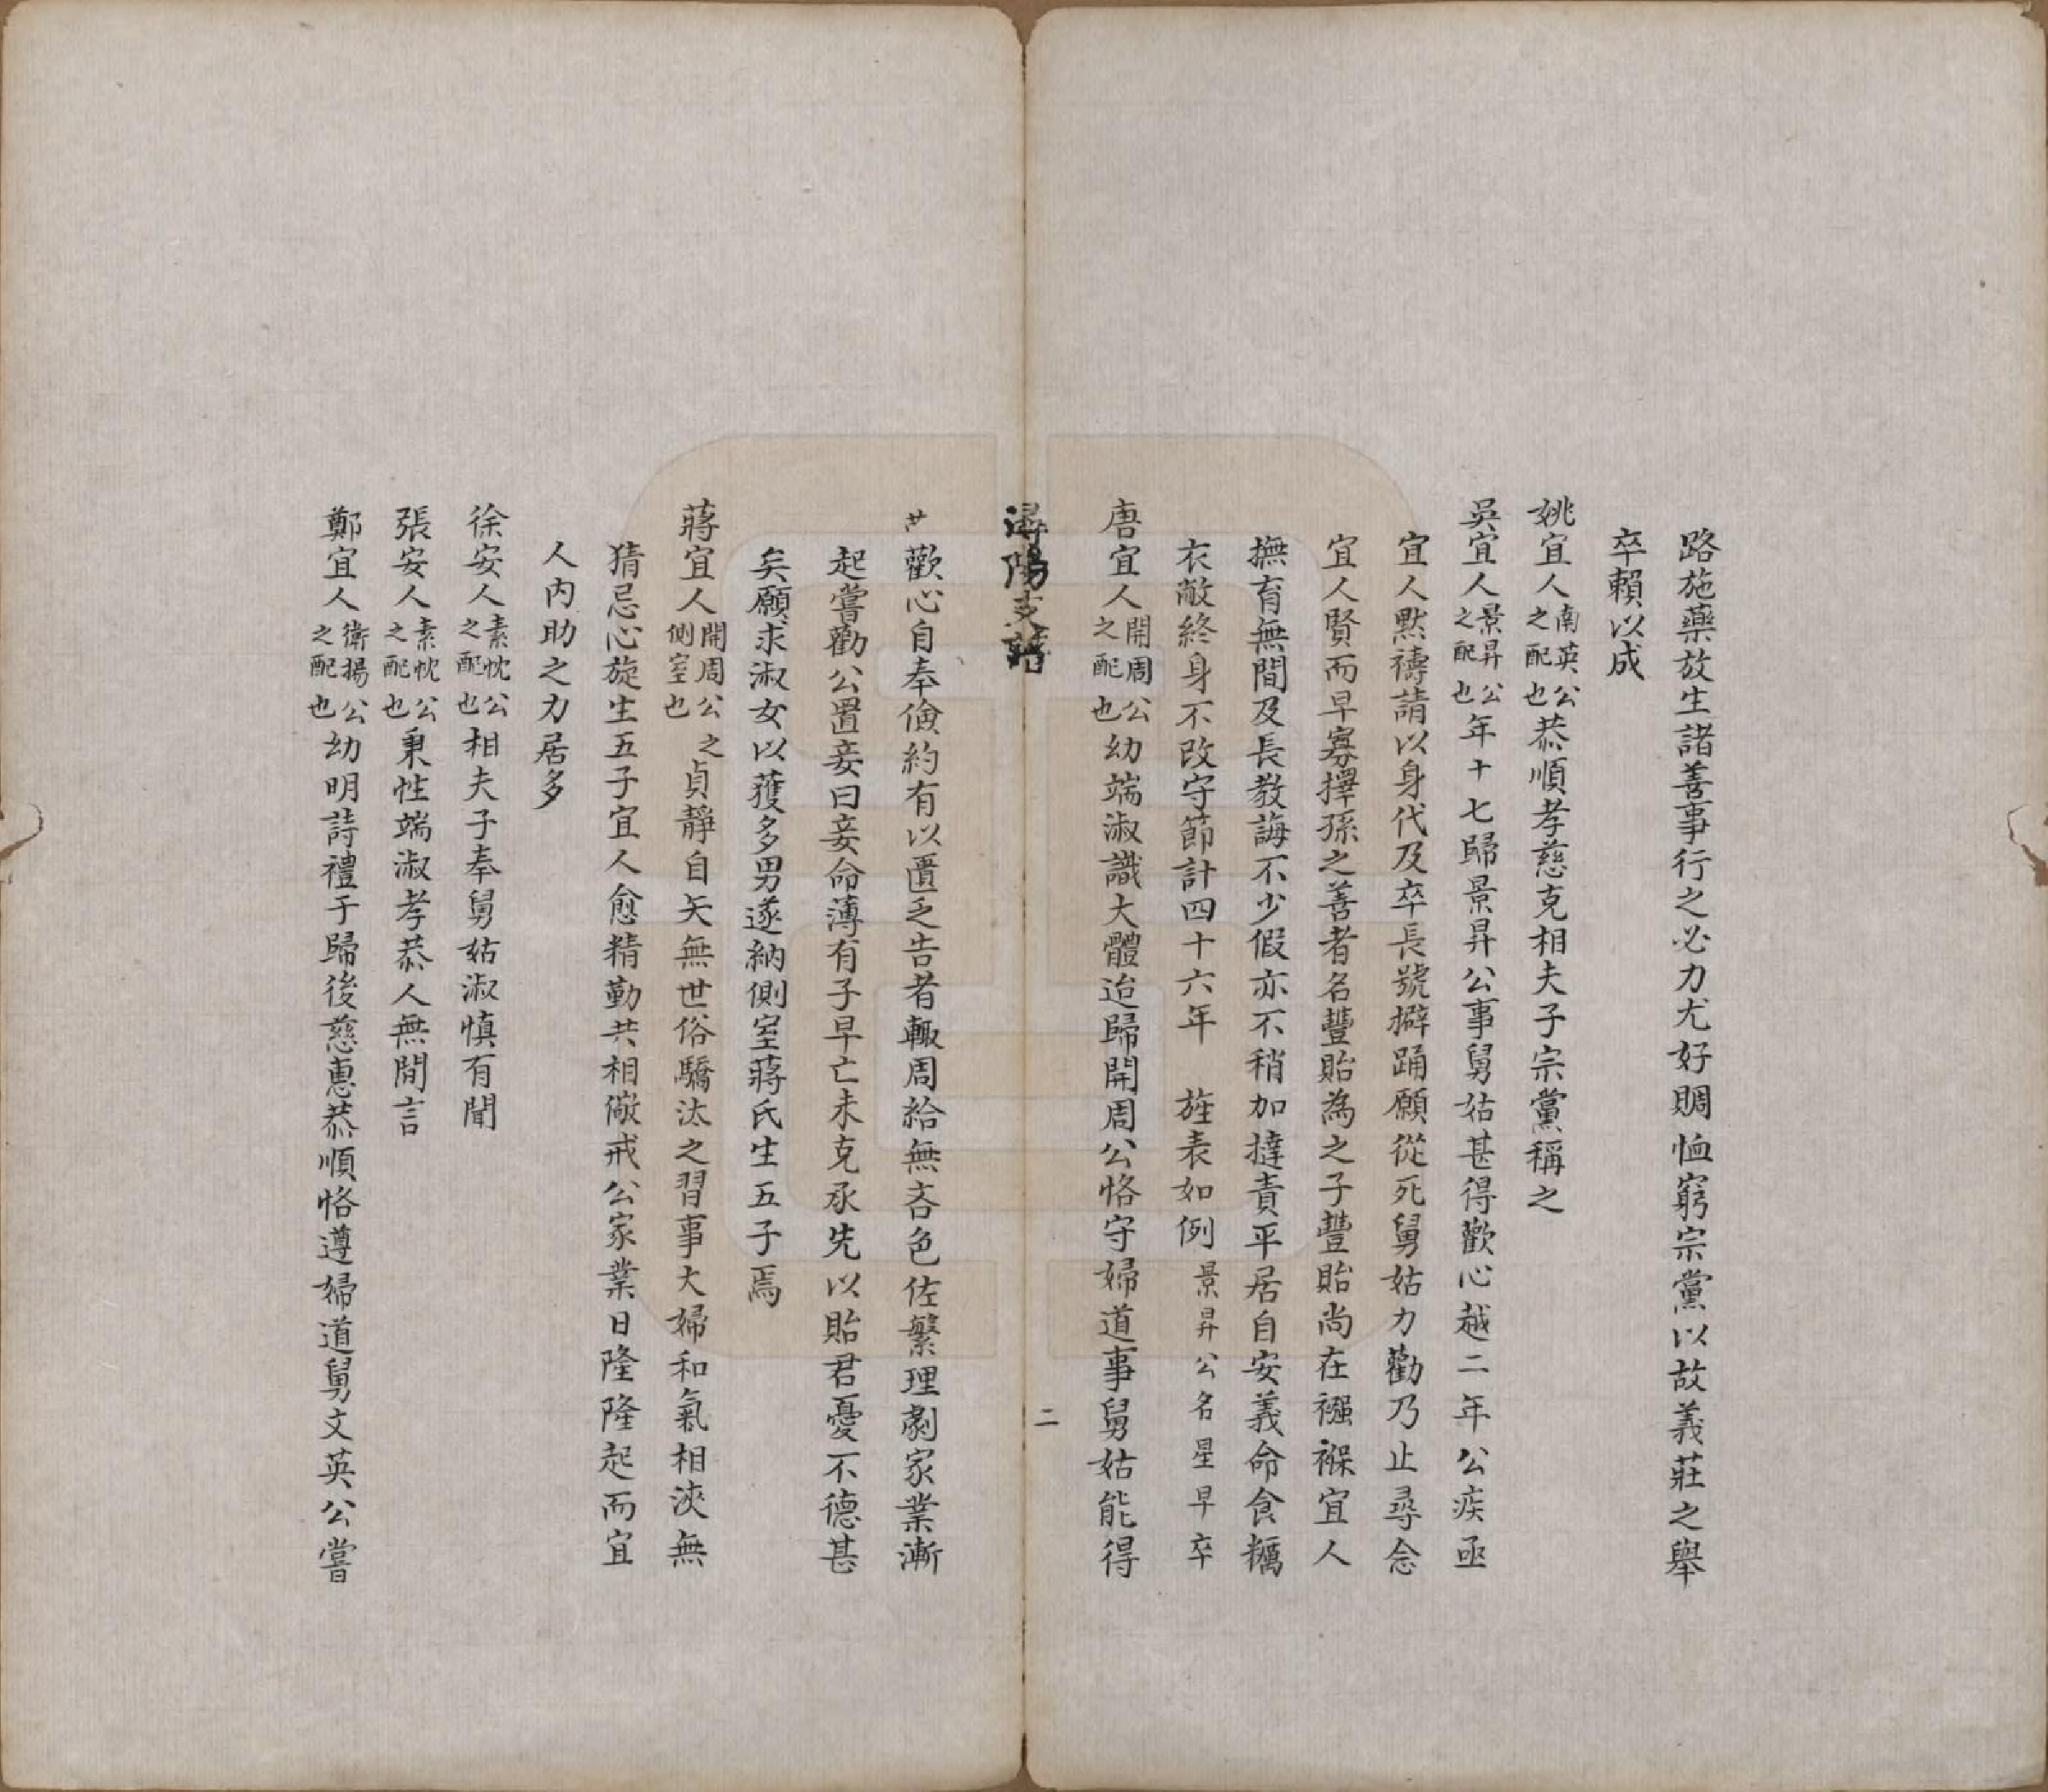 路施藥放生諸善事行之必力尤好賙恤窮宗黨以故義莊之舉
卒賴以成
姚宜人南英公之配也恭順孝慈克相夫子宗黨稱之
吳宜人景昇公之配也年十七歸景昇公事舅姑甚得歡心越二年公疾亟
宜人默禱請以身代及卒長號擗踊願從死舅姑力勸乃止尋念
宜人賢而早寡擇孫之善者名豐貽為之子豐貽尚在襁褓宜人
撫育無間及長教誨不少假亦不稍加撻責平居自安義命食糲
衣敝終身不改守節計四十六年　旌表如例景昇公名星早卒
唐宜人開周公之配也幼端淑識大體迨歸開周公恪守婦道事舅姑能得
潯陽支譜
二
歡心自奉儉約有以匱乏告者輒周給無吝色佐繁理劇家業漸
起嘗勸公置妾曰妾命薄有子早亡未克承先以貽君憂不德甚
矣願求淑女以獲多男遂納側室蔣氏生五子焉
蔣宜人開周公之側室也貞靜自矢無世俗驕汰之習事大婦和氣相浹無
猜忌心旋生五子宜人愈精勤共相儆戒公家業日隆隆起而宜
人內助之力居多
徐安人素忱公之配也相夫子奉舅姑淑慎有聞
張安人素忱公之配也秉性端淑孝恭人無間言
鄭宜人衛揚公之配也幼明詩禮于歸後慈惠恭順恪遵婦道舅文英公嘗